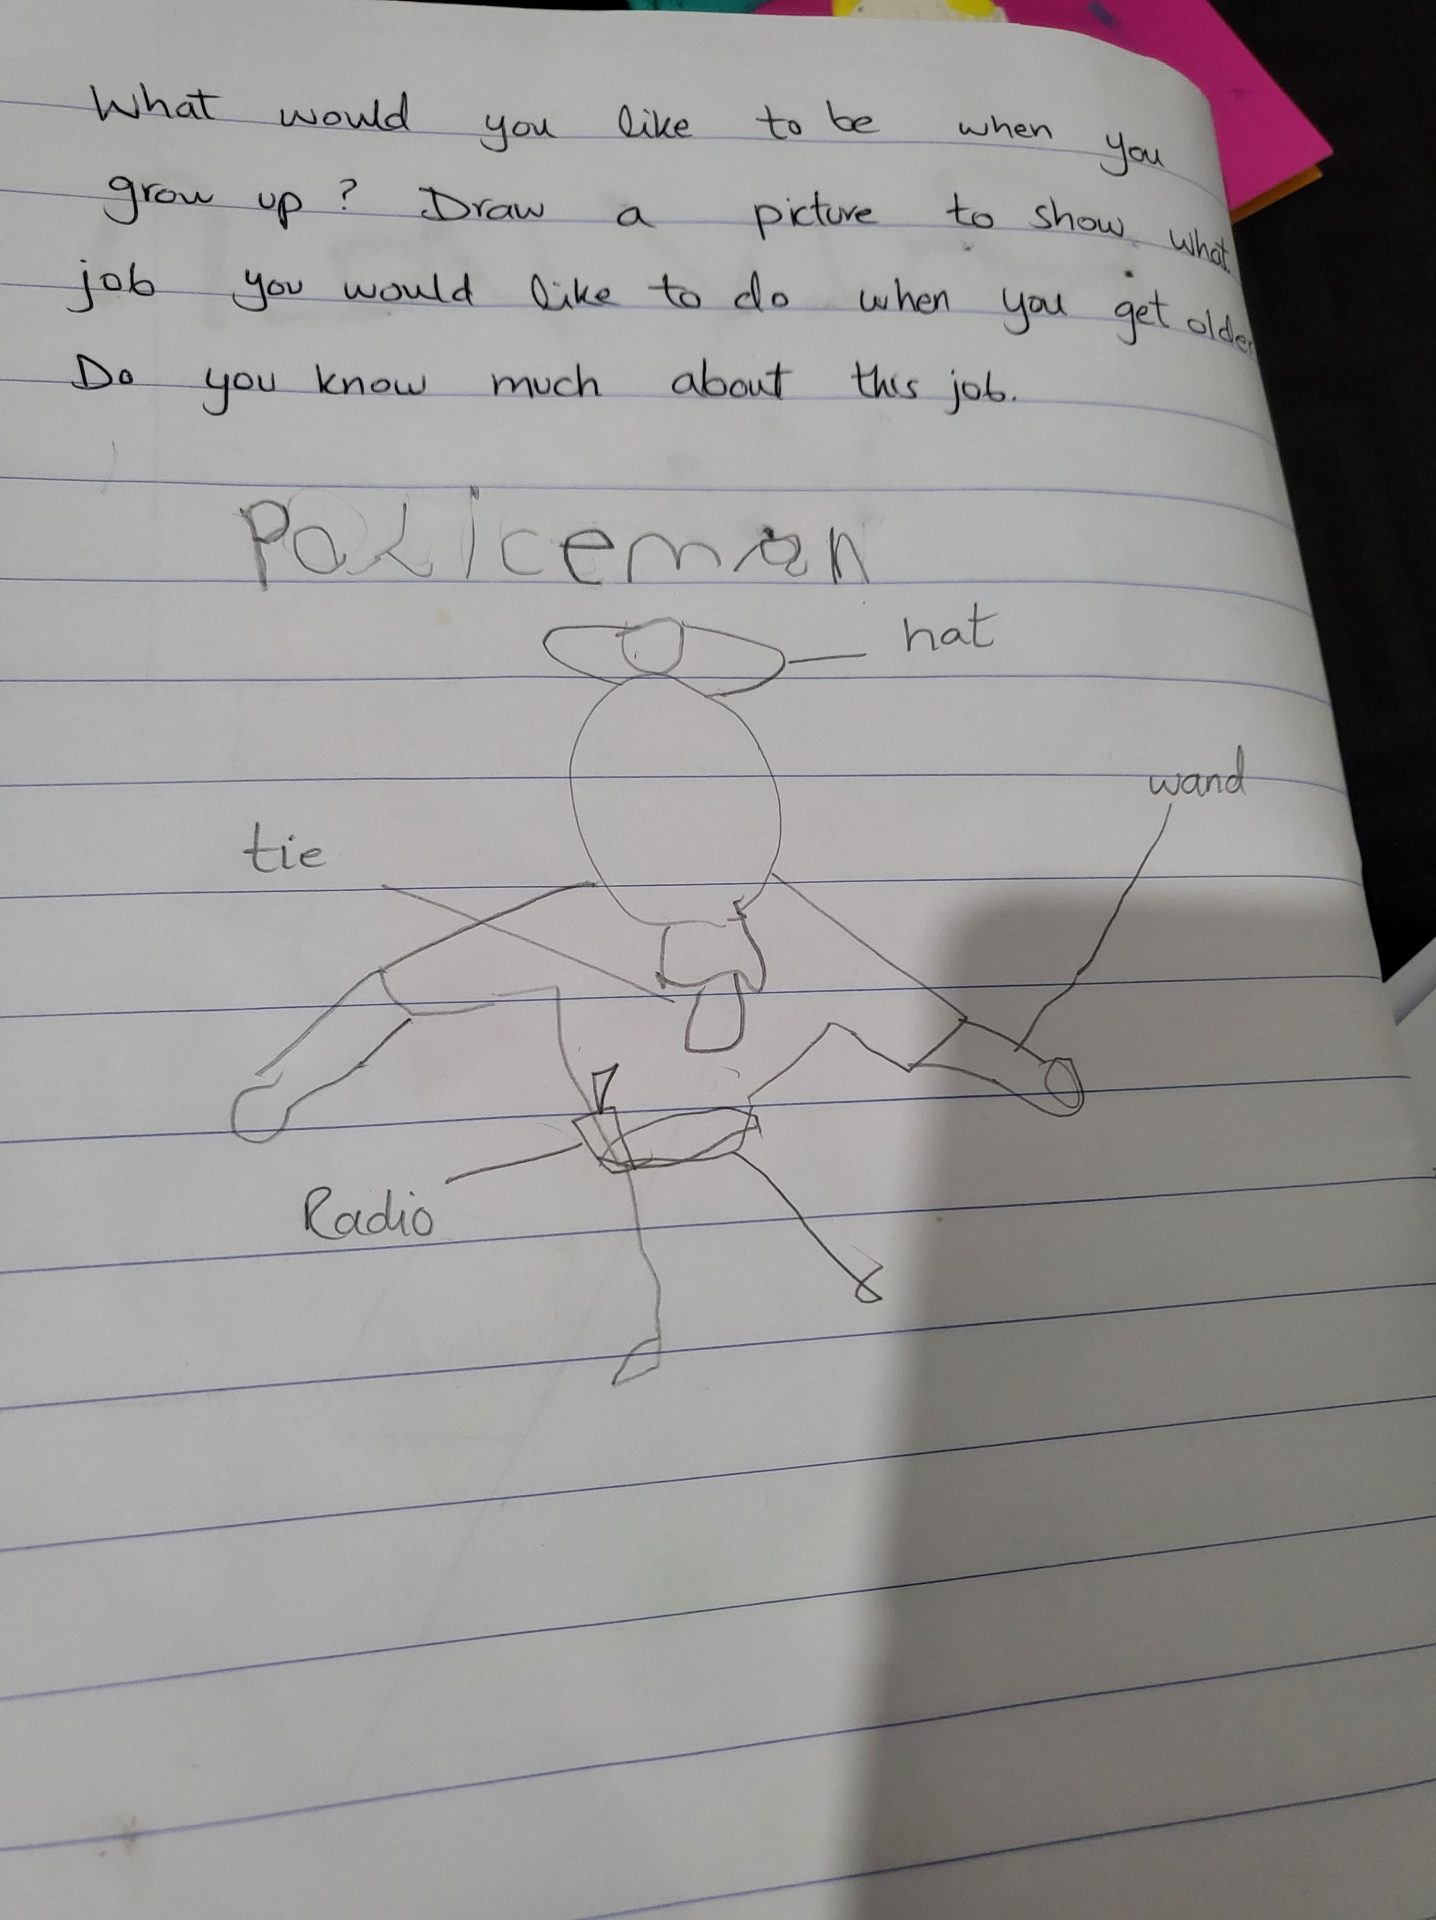 What would you like to be when you
grow up? Draw a picture to show what
job you would like to do when you get older
Do you know much about this job.
PoLiceman
hat
wand
tie
Radio